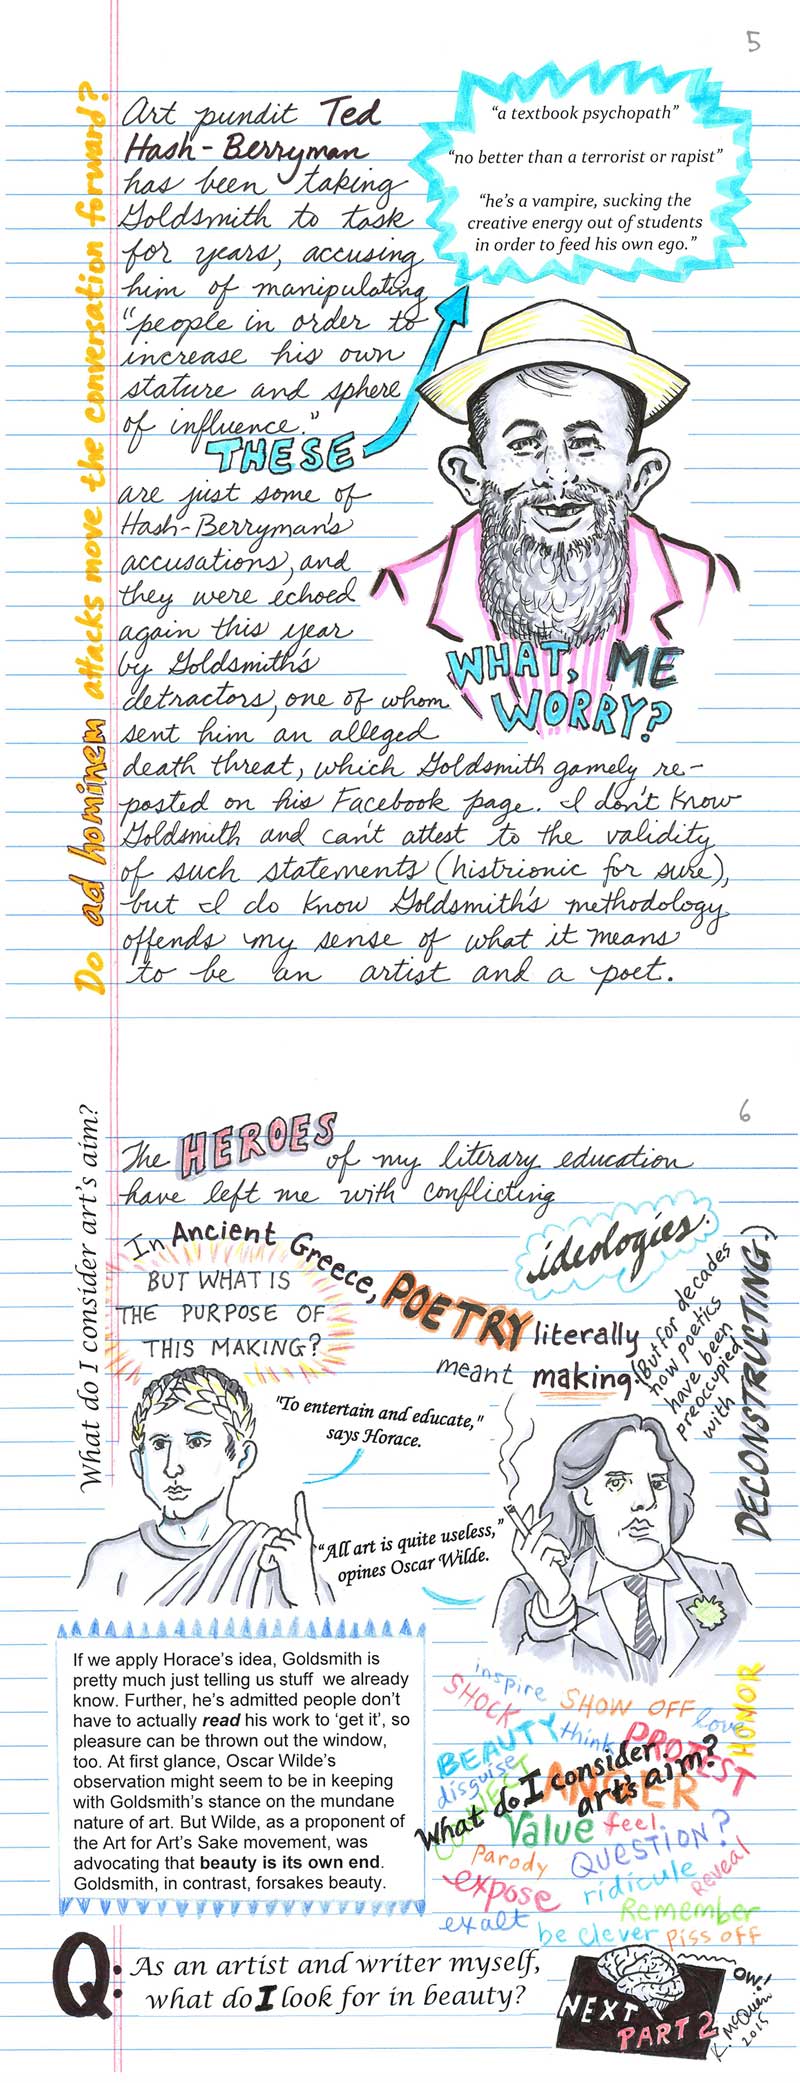 5
Do ad hominem attacks move the conversation forward?
Art pundit Ted
Hash-Berryman
has been taking
Goldsmith to task
for years, accusing
him of manipulating
"people in order to
increase his own
stature and sphere
of influence."
THESE
"a textbook psychopath"
"no better than a terrorist or rapist"
"he's a vampire, sucking the
creative energy out of students
in order to feed his own ego."
are just some of
Hash-Berryman's
accusations, and
they were echoed
again this year
by Goldsmith's
detractors, one of whom
sent him an alleged
death threat, which Goldsmith gamely re-
posted on his Facebook page. I don't know
Goldsmith and can't attest to the validity
of such statements (histrionic for sure),
but I do know Goldsmith's methodology
offends my sense of what it means
to be an artist and a poet.
WHAT, ME
WORRY?
6
What do I consider art's aim?
The HEROES of my literary education
have left me with conflicting
ideologies.
In Ancient Greece, POETRY literally
meant making.
(But for decades
now poetics
have been
preoccupied
with
DECONSTRUCTING.)
BUT WHAT IS
THE PURPOSE OF
THIS MAKING?
"To entertain and educate,"
says Horace.
"All art is quite useless,"
opines Oscar Wilde.
If we apply Horace's idea, Goldsmith is
pretty much just telling us stuff we already
know. Further, he's admitted people don't
have to actually read his work to 'get it', so
pleasure can be thrown out the window,
too. At first glance, Oscar Wilde's
observation might seem to be in keeping
with Goldsmith's stance on the mundane
nature of art. But Wilde, as a proponent of
the Art for Art's Sake movement, was
advocating that beauty is its own end.
Goldsmith, in contrast, forsakes beauty.
inspire
SHOCK
SHOW OFF
love
HONOR
BEAUTY
think
PROTEST
disguise
CONNECT
ANGER
What do I consider
art's aim?
Value
feel
QUESTION?
Parody
expose
ridicule
Reveal
Remember
exalt
be clever
PISS OFF
Q: As an artist and writer myself,
what do I look for in beauty?
OW!
NEXT
PART 2
K. McQuien
2015